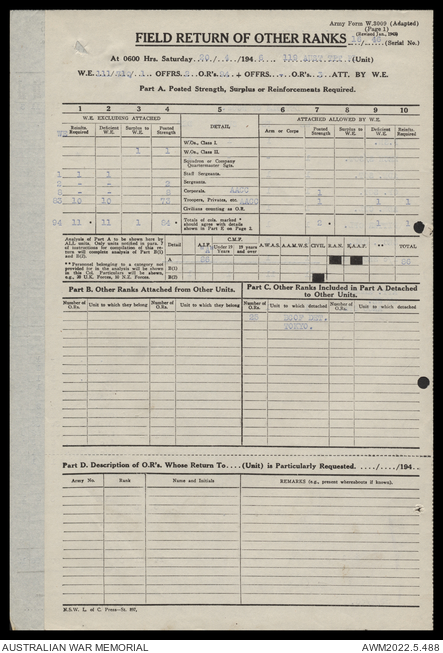 Army Form W.3009 (Adapted)
(Page 1)
(Revised Jan., 1943)
FIELD RETURN OF OTHER RANKS
(Serial No.)
At 0600 Hrs. Saturday 20/ /194 (Unit)
W.E. OFFRS. O.R's. + OFFRS. O.R's. ATT. BY W.E.
Part A. Posted Strength, Surplus or Reinforcements Required.
1 2 3 4 5 6 7 8 9 10
W.E. EXCLUDING ATTACHED
ATTACHED ALLOWED BY W.E.
Reinfts. Required
Deficient W.E.
Surplus to W.E.
Posted Strength
DETAIL
Arm or Corps
Posted Strength
Surplus to W.E.
Deficient W.E.
Reinfts. Required
W.Os., Class I.
W.Os., Class II. 1 1
Squadron or Company
Quartermaster Sgts.
1 1 1 Staff Sergeants.
Sergeants.
Corporals. AACC 1
83 10 10 73 Troopers, Privates, etc. AACC 1 1 1
Civilians counting as O.R.
94 11 11 1 Totals of cols. marked *
should agree with details
shown in Part E on Page 2.
Analysis of Part A to be shown here by
ALL units. Only units entitled in para. 7
of instructions for compilation of this re-
turn will complete analysis of Part B(1)
and B(2).
** Personnel belonging to a category not
provided for in the analysis will be shown
in this Col. Particulars will be shown,
e.g., 20 U.K. Forces, 10 N.Z. Forces.
Detail
A.I.F.
C.M.F.
Under 19
19 years and over
A.W.A.S.
A.A.M.W.S.
CIVIL
R.A.N.
R.A.A.F.
**
TOTAL
A
B(1)
B(2)
Part B. Other Ranks Attached from Other Units.
Part C. Other Ranks Included in Part A Detached
to Other Units.
Number of O.Rs.
Unit to which they belong
Number of O.Rs.
Unit to which they belong
Number of O.Rs.
Unit to which detached
Number of O.Rs.
Unit to which detached
BCOF DET.
TOKYO.
Part D. Description of O.R's. Whose Return To....(Unit) is Particularly Requested. ..../..../194..
Army No.
Rank
Name and Initials
REMARKS (e.g., present whereabouts if known).
N.S.W. L. of C. Press—St. 897.
AUSTRALIAN WAR MEMORIAL
AWM2022.5.488